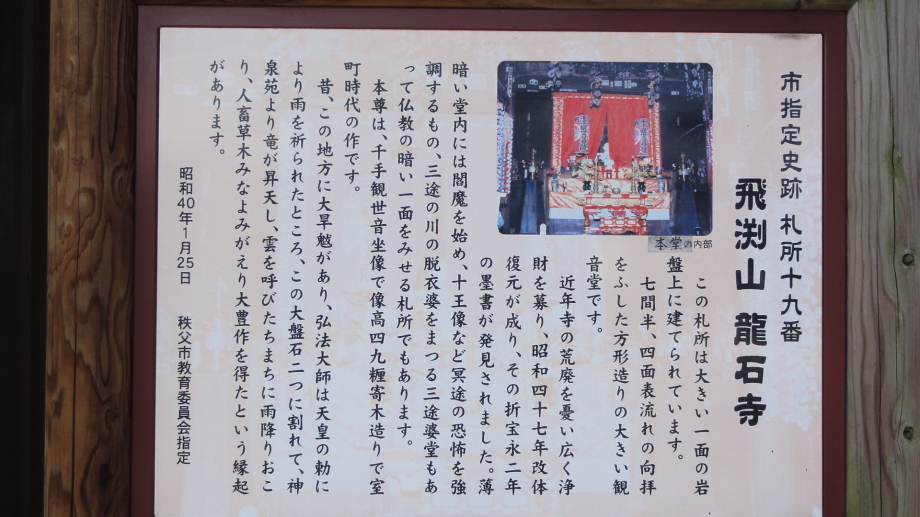 市指定史跡 札所十九番
飛渕山 龍石寺
本堂の内部
この札所は大きい一面の岩
盤上に建てられています。
七間半、四面表流れの向拝
をふした方形造りの大きい観
音堂です。
近年寺の荒廃を憂い広く浄
財を募り、昭和四十七年改体
復元が成り、その折宝永二年
の墨書が発見されました。薄
暗い堂内には閻魔を始め、十王像など冥途の恐怖を強
調するもの、三途の川の脱衣婆をまつる三途婆堂もあ
って仏教の暗い一面をみせる札所でもあります。
本尊は、千手観世音坐像で像高四九糎寄木造りで室
町時代の作です。
昔、この地方に大旱魃があり、弘法大師は天皇の勅に
より雨を祈られたところ、この大盤石二つに割れて、神
泉苑より竜が昇天し、雲を呼びたちまちに雨降りおこ
り、人畜草木みなよみがえり大豊作を得たという縁起
があります。
昭和40年1月25日 秩父市教育委員会指定